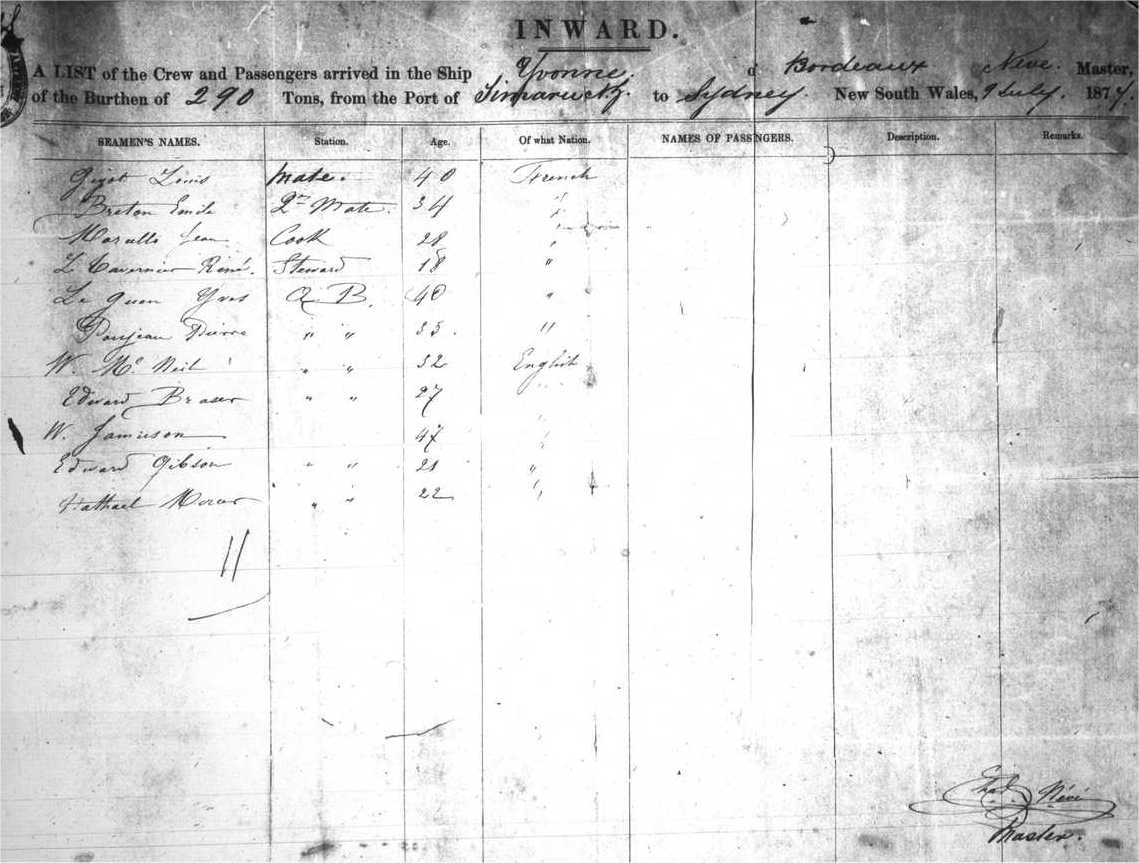 INWARD.
A LIST of the Crew and Passengers arrived in the Ship Yvonne. of Bordeaux Neve. Master,
of the Burthen of 290 Tons, from the Port of to Sydney. New South Wales, 9 July. 1877.
SEAMEN'S NAMES. Station. Age. Of what Nation. NAMES OF PASSENGERS. Description. Remarks.
Louis Mate. 40 French
Breton Emile 2nd Mate. 34 "
Jean Cook 28 "
René. Steward 18 "
Le Yves A B. 40 "
Pierre " " 35. "
W. Mc Neil " " 32 English
Edward " " 27
W. Jamieson 47 "
Edward Gibson " " 21 "
" " 22 "
11
Chas. Névé
Master.